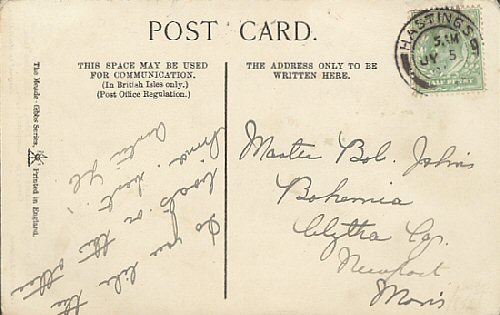 POST CARD.
THIS SPACE MAY BE USED
FOR COMMUNICATION.
(In British Isles only.)
(Post Office Regulation.)
THE ADDRESS ONLY TO BE
WRITTEN HERE.
HASTINGS
JY 5
Do you like the
on the other
dont
Auntie
Master Bob. Johns
Bohemia
Clytha
Newport
Mon
The Meade-Gibbs Series. Printed in England.